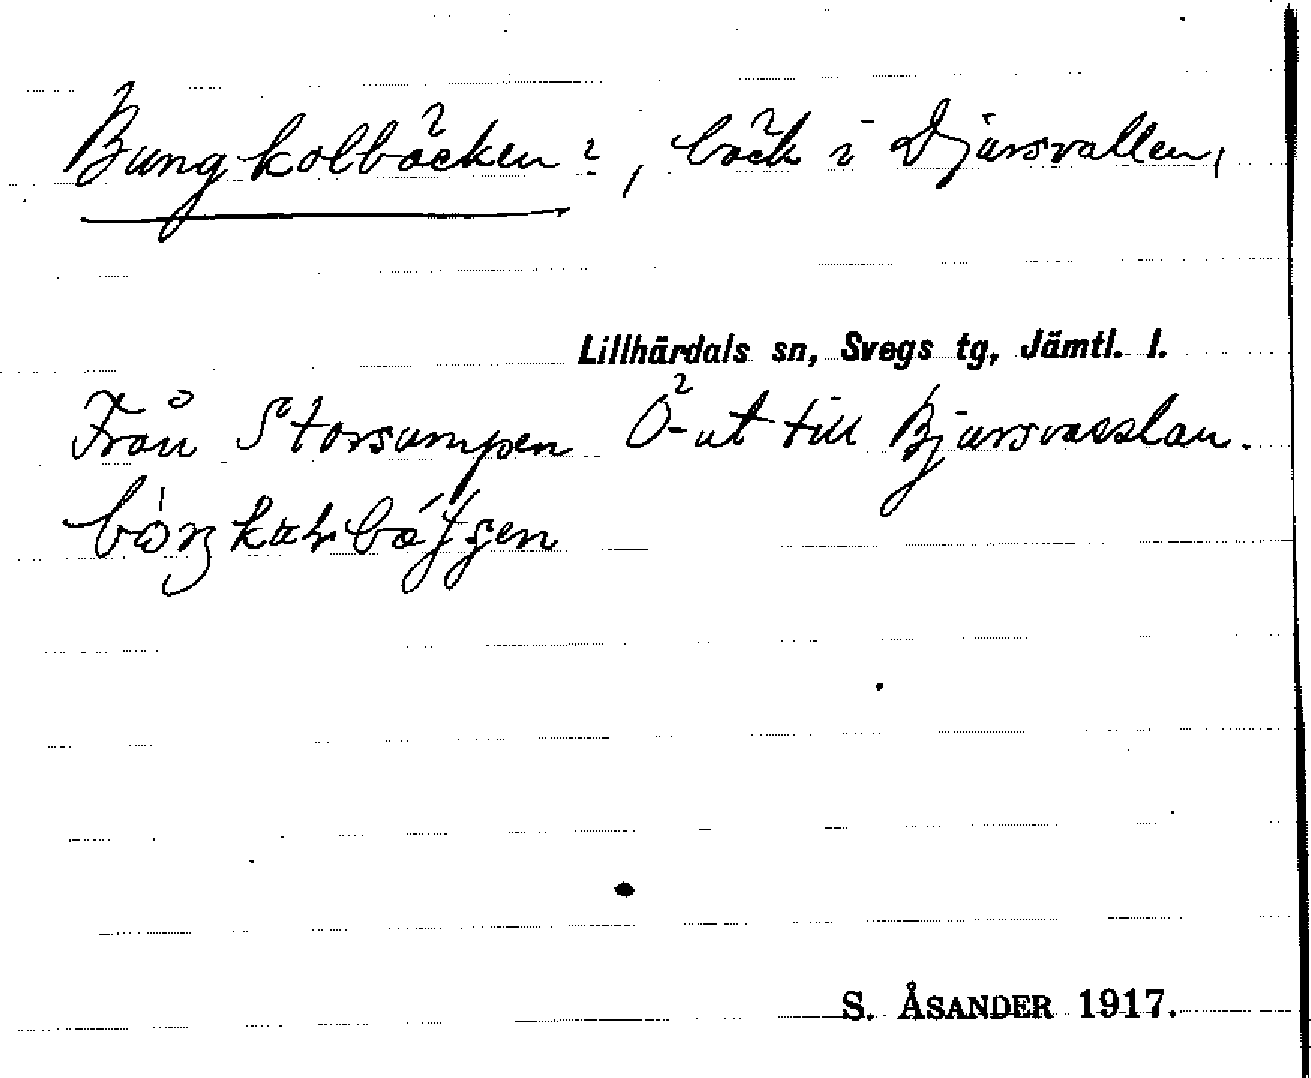 Bungkolbäcken?, bäck i Djursvallen,
Lillhärdals sn, Svegs tg, Jämtl. l.
Från Storsumpen Ö-ut till Bjursvasslan.
S. ÅSANDER 1917.